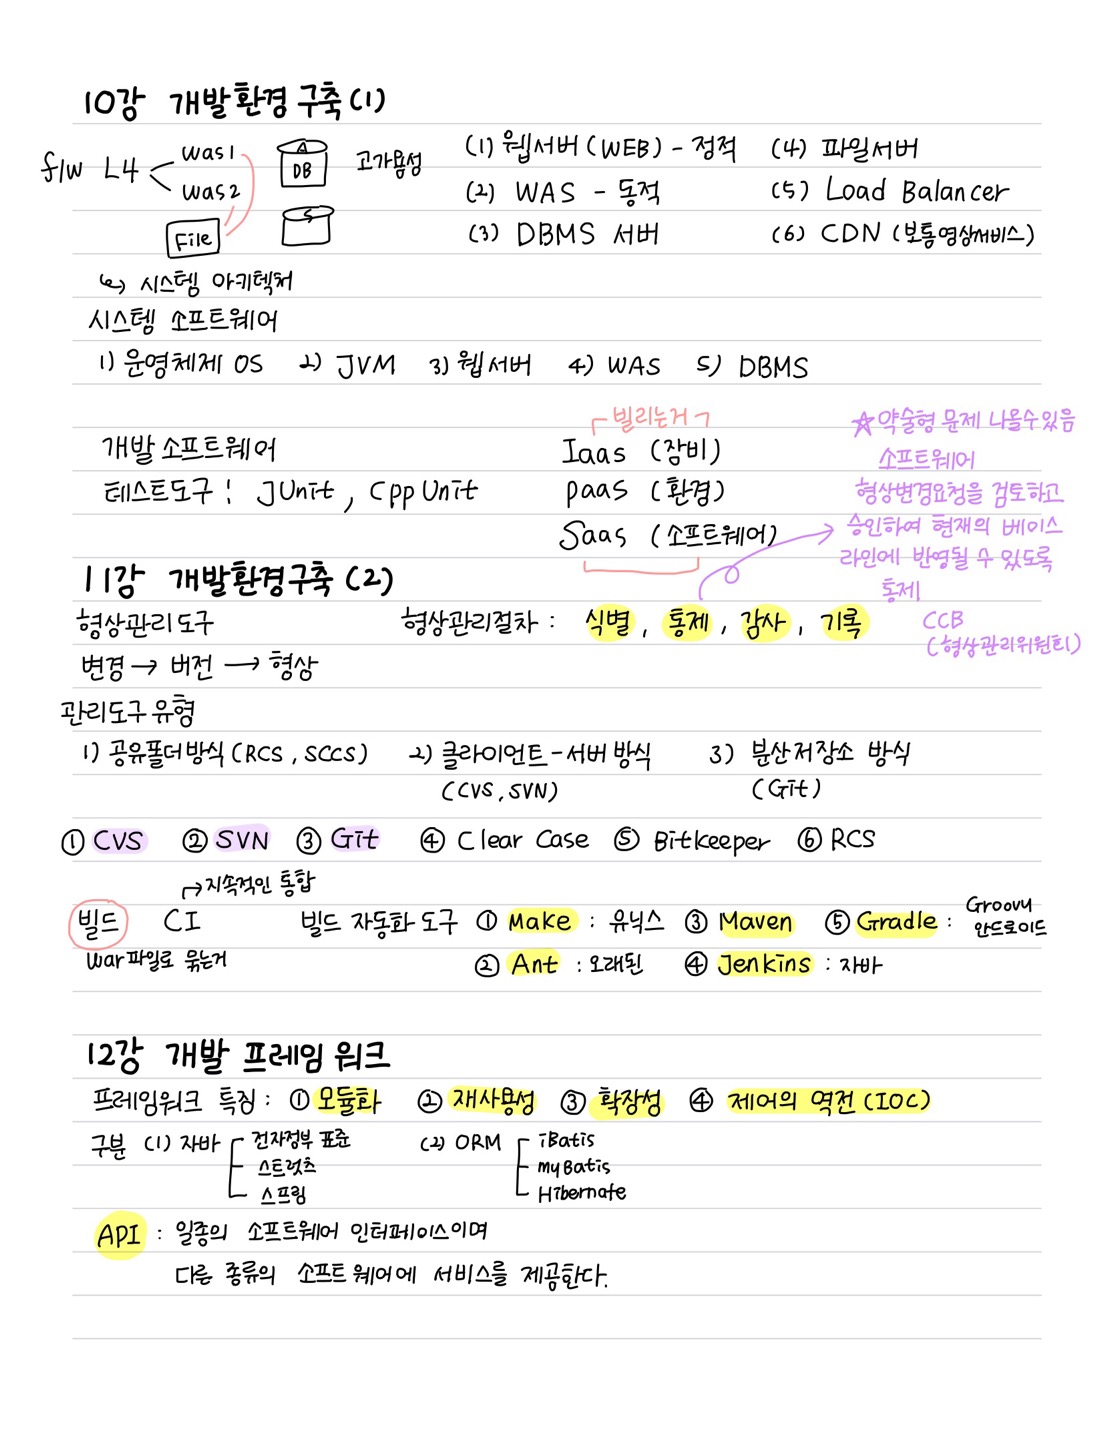 10강 개발환경 구축(1)
f/w L4 was1
was2
File
A
DB
S
고가용성
(1) 웹서버(WEB) - 정적
(2) WAS - 동적
(3) DBMS 서버
(4) 파일서버
(5) Load Balancer
(6) CDN (보통영상서비스)
↳ 시스템 아키텍처
시스템 소프트웨어
1) 운영체제 OS 2) JVM 3) 웹서버 4) WAS 5) DBMS
개발 소프트웨어
테스트도구 : JUnit, CppUnit
빌리는거
Iaas (장비)
paas (환경)
Saas (소프트웨어)
☆ 약술형 문제 나올수있음
소프트웨어
형상변경요청을 검토하고
승인하여 현재의 베이스
라인에 반영될 수 있도록
통제
CCB
(형상관리위원회)
11강 개발환경구축(2)
형상관리도구 형상관리절차 : 식별, 통제, 감사, 기록
변경 → 버전 → 형상
관리도구유형
1) 공유폴더방식(RCS, SCCS) 2) 클라이언트-서버방식 3) 분산저장소 방식
(CVS, SVN) (Git)
① CVS ② SVN ③ Git ④ Clear Case ⑤ Bitkeeper ⑥ RCS
→ 지속적인 통합
빌드 CI 빌드 자동화 도구 ① Make : 유닉스 ③ Maven ⑤ Gradle : Groovy
안드로이드
war파일로 묶는거 ② Ant : 오래된 ④ Jenkins : 자바
12강 개발 프레임워크
프레임워크 특징 : ① 모듈화 ② 재사용성 ③ 확장성 ④ 제어의 역전(IOC)
구분 (1) 자바 전자정부 표준
스트럿츠
스프링
(2) ORM iBatis
myBatis
Hibernate
API : 일종의 소프트웨어 인터페이스이며
다른 종류의 소프트웨어에 서비스를 제공한다.